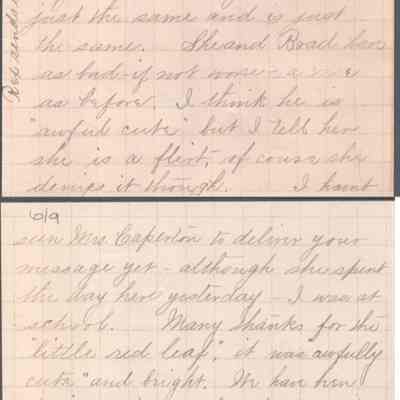 just the same and is just
the same. She and Brad
as bad - if not worse
as before. I think he is
"awful cute" but I tell her
she is a flirt, of course she
denies it though. I haint
6/9
seen Mrs. Caperton to deliver your
message yet - although she spent
the day here yesterday - I was at
school. Many thanks for the
"little red leaf", it was "awfully
cute" and bright. We have been
Rex sends